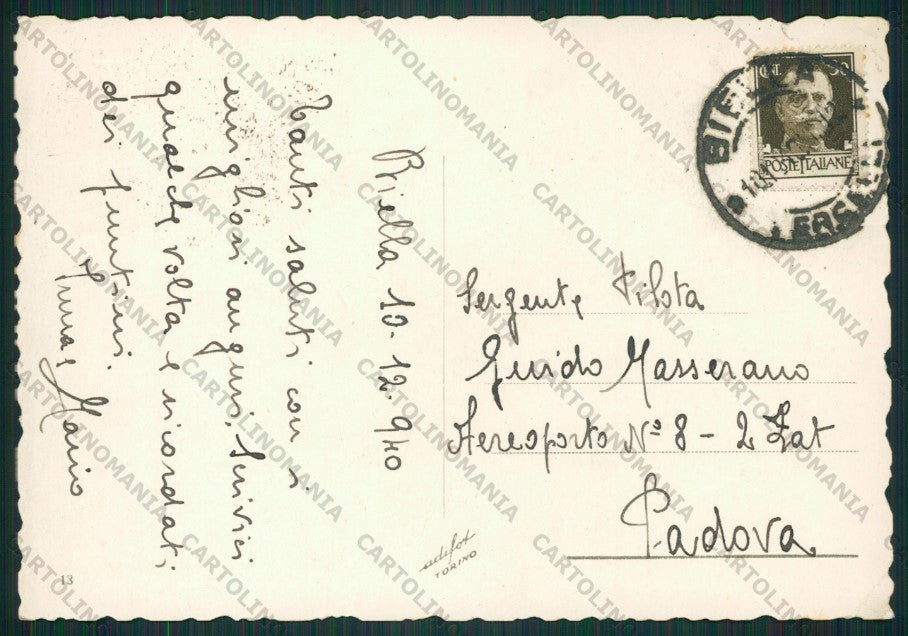 Biella 10-12-940
Tanti saluti con i
migliori auguri. Scrivici
qualche volta e ricordati
dei
Mario
CENT. 30
POSTE ITALIANE
BIELLA
Sergente Pilota
Guido Masserano
Aereoporto Nº 8 - 2 Zat
Padova
adifot
TORINO
13
CARTOLINOMANIA